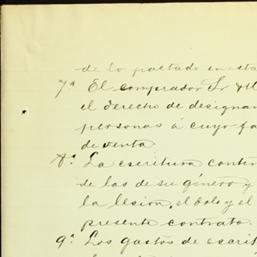 de lo pactado en esta
7ª El comprador Sr
el derecho de designar
personas á cuyo fa
de venta
8ª La escritura conten
de las de su género y
la lesion, el dolo y el
presente contrato.
9ª Los gastos de escrit